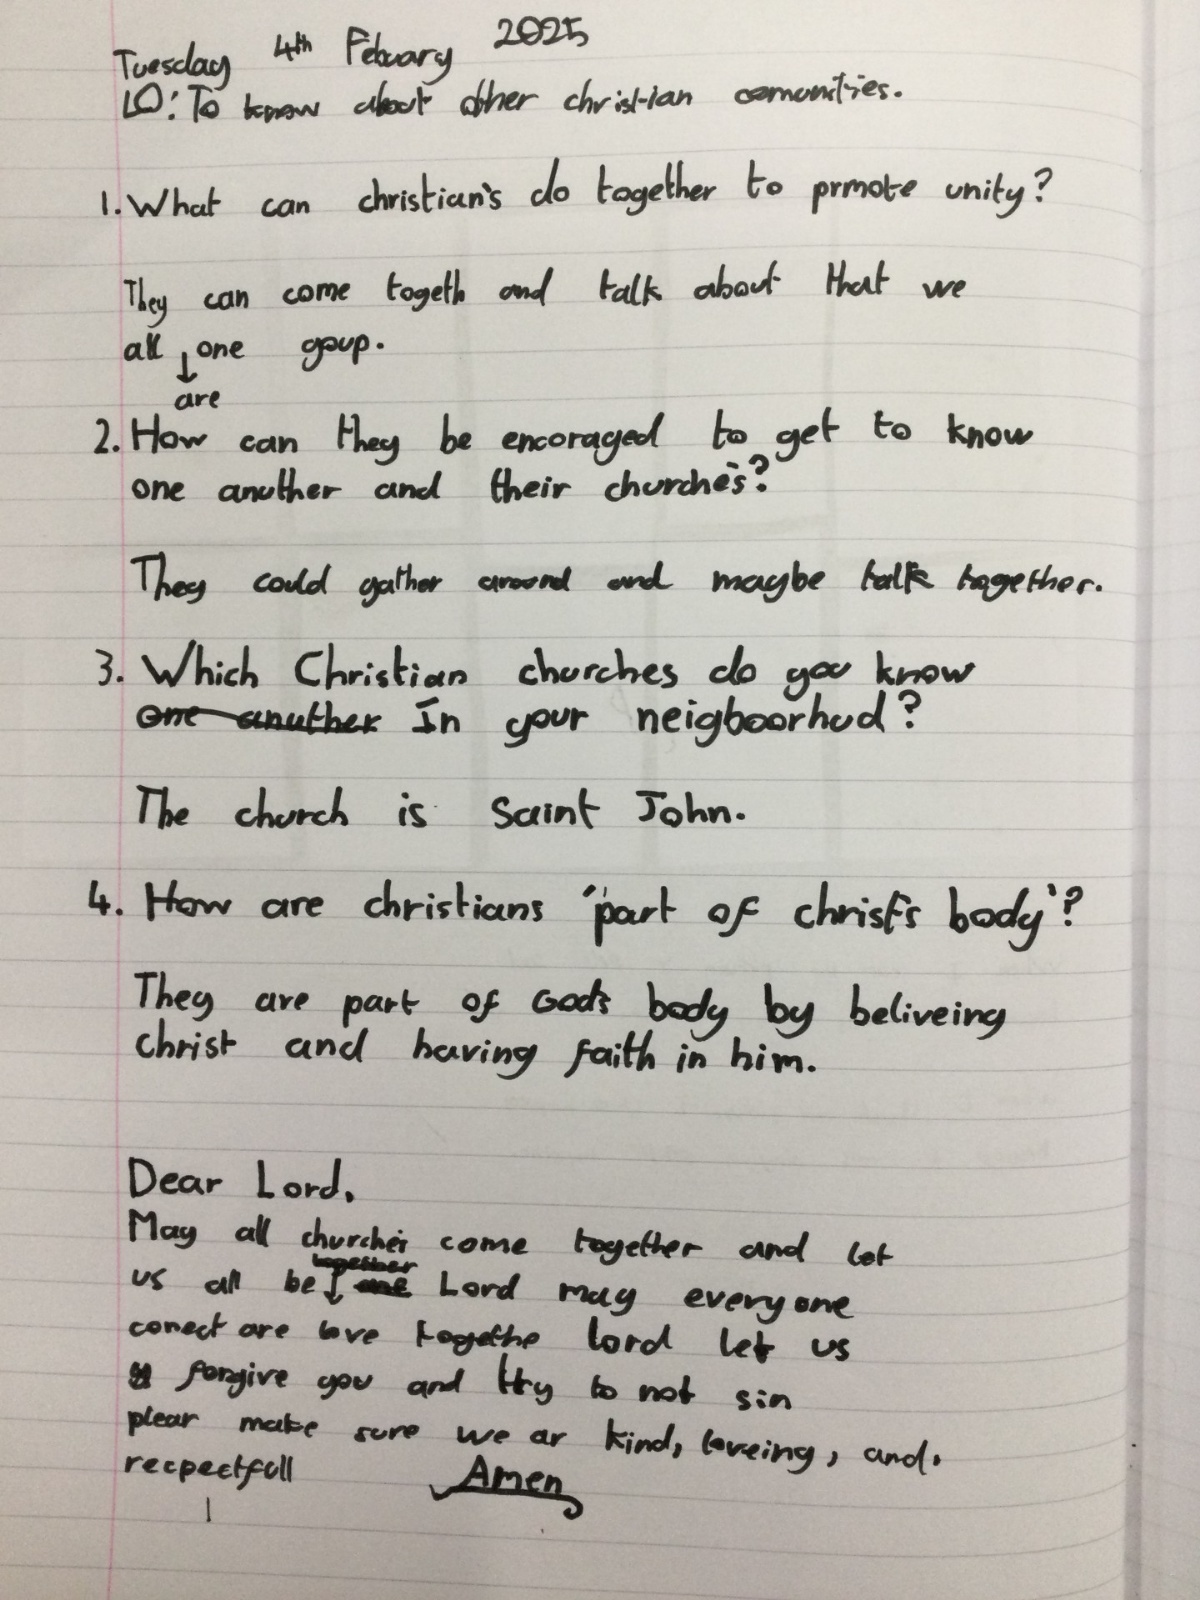 Tuesday 4th Febuary 2025
LO: To know about other christian comunities.
1. What can christian's do together to prmote unity?
They can come togeth and talk about that we
all ↓ one goup.
are
2. How can they be encoraged to get to know
one anuther and their churches?
They could gather around and maybe talk together.
3. Which Christian churches do you know
one anuther In your neigboorhud?
The church is Saint John.
4. How are christians 'part of christ's body'?
They are part of God's body by beliveing
christ and having faith in him.
Dear Lord,
May all churches come together and let
together
us all be ↓ one Lord may everyone
conect are love togethe lord let us
forgive you and ttry to not sin
plear make sure we ar kind, loveing, and.
recpectfull Amen